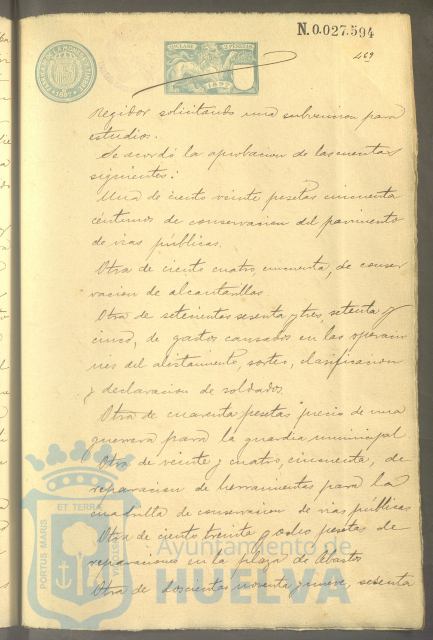 N.0.027.594
469
Regidor solicitando una subvencion para
estudios.
Se acordó la aprobacion de las cuentas
siguientes:
Una de ciento veinte pesetas cincuenta
céntimos de conservacion del pavimento
de vias públicas.
Otra de ciento cuatro, cincuenta, de conser
vacion de alcantarillas
Otra de setecientos sesenta y tres, setenta y
cinco, de gastos causados en las operacio
nes del alistamiento, sorteo, clasificacion
y declaracion de soldados
Otra de cuarenta pesetas precio de una
guerrera para la guardia municipal
Otra de veinte y cuatro, cincuenta, de
reparacion de herramientas para la
cuadrilla de conservacion de vias públicas
Otra de ciento treinta y ocho pesetas de
reparaciones en la plaza de Abastos
Otra de doscientas noventa y nueve, sesenta
PORTUS MARIS
ET TERRÆ
CUSTODIA
Ayuntamiento de
HUELVA